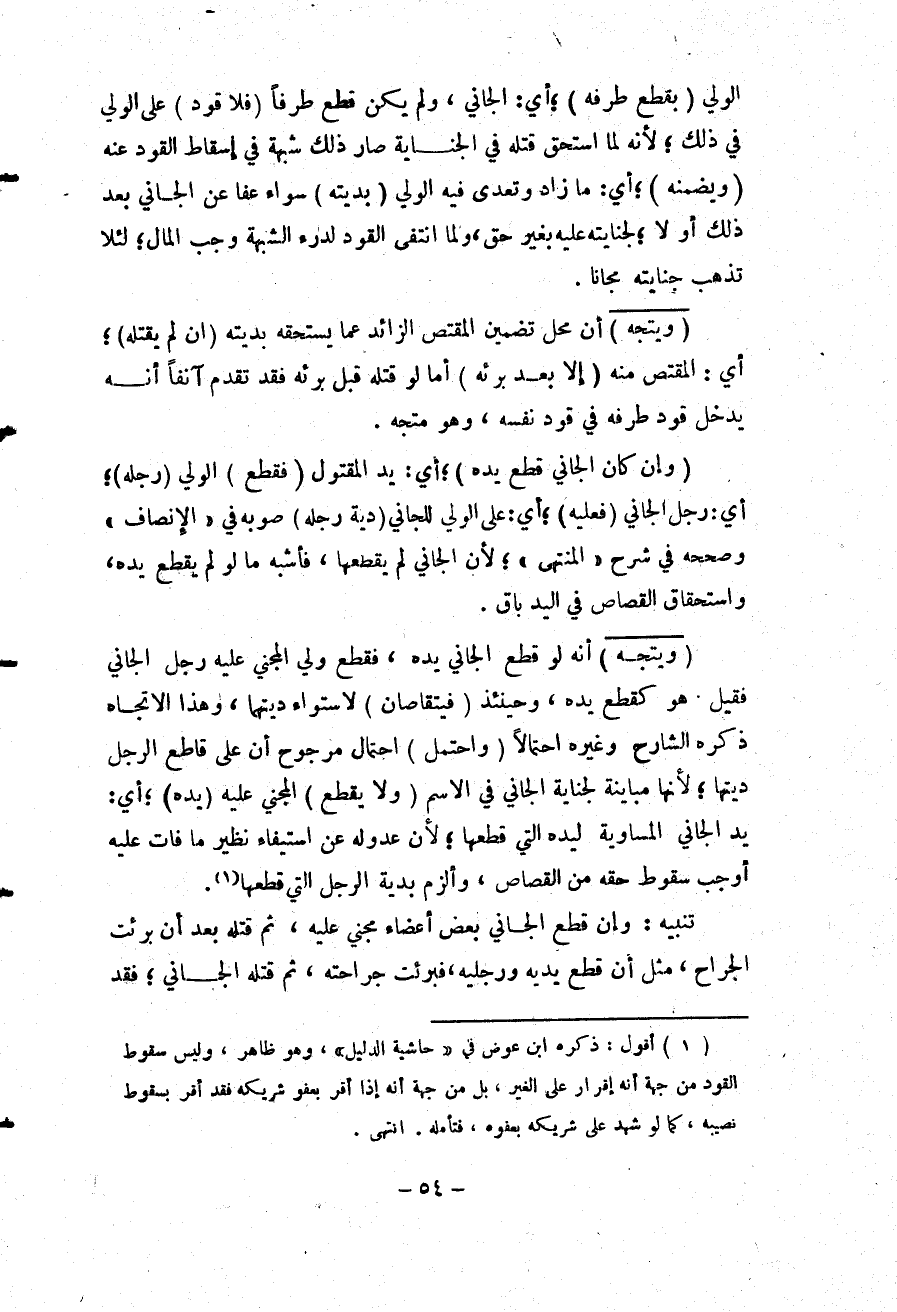 الولي ( بقطع طرفه ) ؛أي: الجاني ، ولم يكن قطع طرفاً ( فلا قود ) على الولي
في ذلك ؛ لأنه لما استحق قتله في الجنــــاية صار ذلك شبهة في إسقاط القود عنه
( ويضمنه ) ؛أي: ما زاد وتعدى فيه الولي ( بديته ) سواء عفا عن الجـاني بعد
ذلك أو لا ؛لجنايته عليه بغير حق،ولما انتفى القود لدرء الشبهة وجب المال؛ لئلا
تذهب جنايته مجانا .
( ويتجه ) أن محل تضمين المقتص الزائد عما يستحقه بديته (ان لم يقتله) ؛
أي : المقتص منه ( إلا بعـد برئه ) أما لو قتله قبل برئه فقد تقدم آنفاً أنـــه
يدخل قود طرفه في قود نفسه ، وهو متجه .
( وإن كان الجاني قطع يده ) ؛أي: يد المقتول ( فقطع ) الولي (رجله)؛
أي:رجل الجاني (فعليه) ؛أي:على الولي للجاني(دية رجله) صوبه في « الإنصاف »
وصححه في شرح « المنتهى » ؛ لأن الجاني لم يقطعها ، فأشبه ما لو لم يقطع يده،
واستحقاق القصاص في اليد باق .
( ويتجـه ) أنه لو قطع الجاني يده ، فقطع ولي المجني عليه رجل الجاني
فقيل . هو كقطع يده ، وحينئذ ( فيتقاصان ) لاستواء ديتها ، وهذا الاتجـاه
ذكره الشارح وغيره احتمالاً ( واحتمل ) احتمال مرجوح أن على قاطع الرجل
ديتها ؛ لأنها مباينة لجناية الجاني في الاسم ( ولا يقطع ) المجني عليه (يده) ؛أي:
يد الجاني المساوية ليده التي قطعها ؛ لأن عدوله عن استيفاء نظير ما فات عليه
أوجب سقوط حقه من القصاص ، وألزم بدية الرجل التي قطعها(١).
تنبيه : وإن قطع الجـاني بعض أعضاء مجني عليه ، ثم قتله بعد أن برئت
الجراح ، مثل أن قطع يديه ورجليه،فبرئت جراحته ، ثم قتله الجـــاني ؛ فقد
( ١ ) أقول : ذكره ابن عوض في « حاشية الدليل» ، وهو ظاهر ، وليس سقوط
القود من جهة أنه إقرار على الغير ، بل من جهة أنه إذا أقر بعفو شريكه فقد أقر بسقوط
نصيبه ، كما لو شهد على شريكه بعفوه ، فتأمله . انتهى .
– ٥٤ –